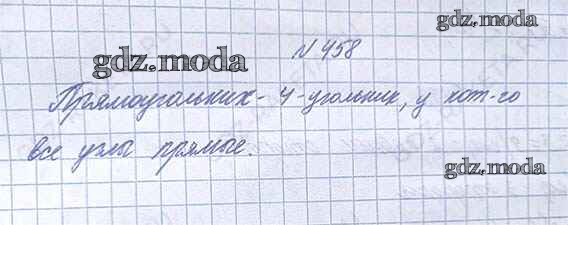 gdz.moda
№ 458
gdz.moda
Прямоугольник - 4-угольник, у кот-го
все углы прямые.
gdz.moda